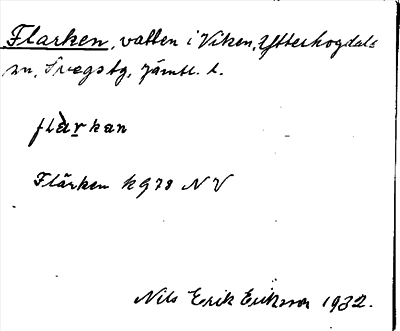 Flarken, vatten i Viken, Ytterhogdals
sn, Svegs tg, Jämtl. l.
flàr̲kan
Flärken kg78 NV
Nils Erik Eriksson 1932.